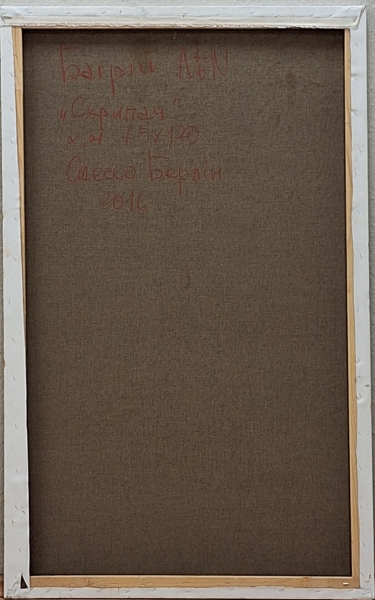 Багрій AEN
„Скрипач"
х.м 75х120
Одесса Берлін
2016